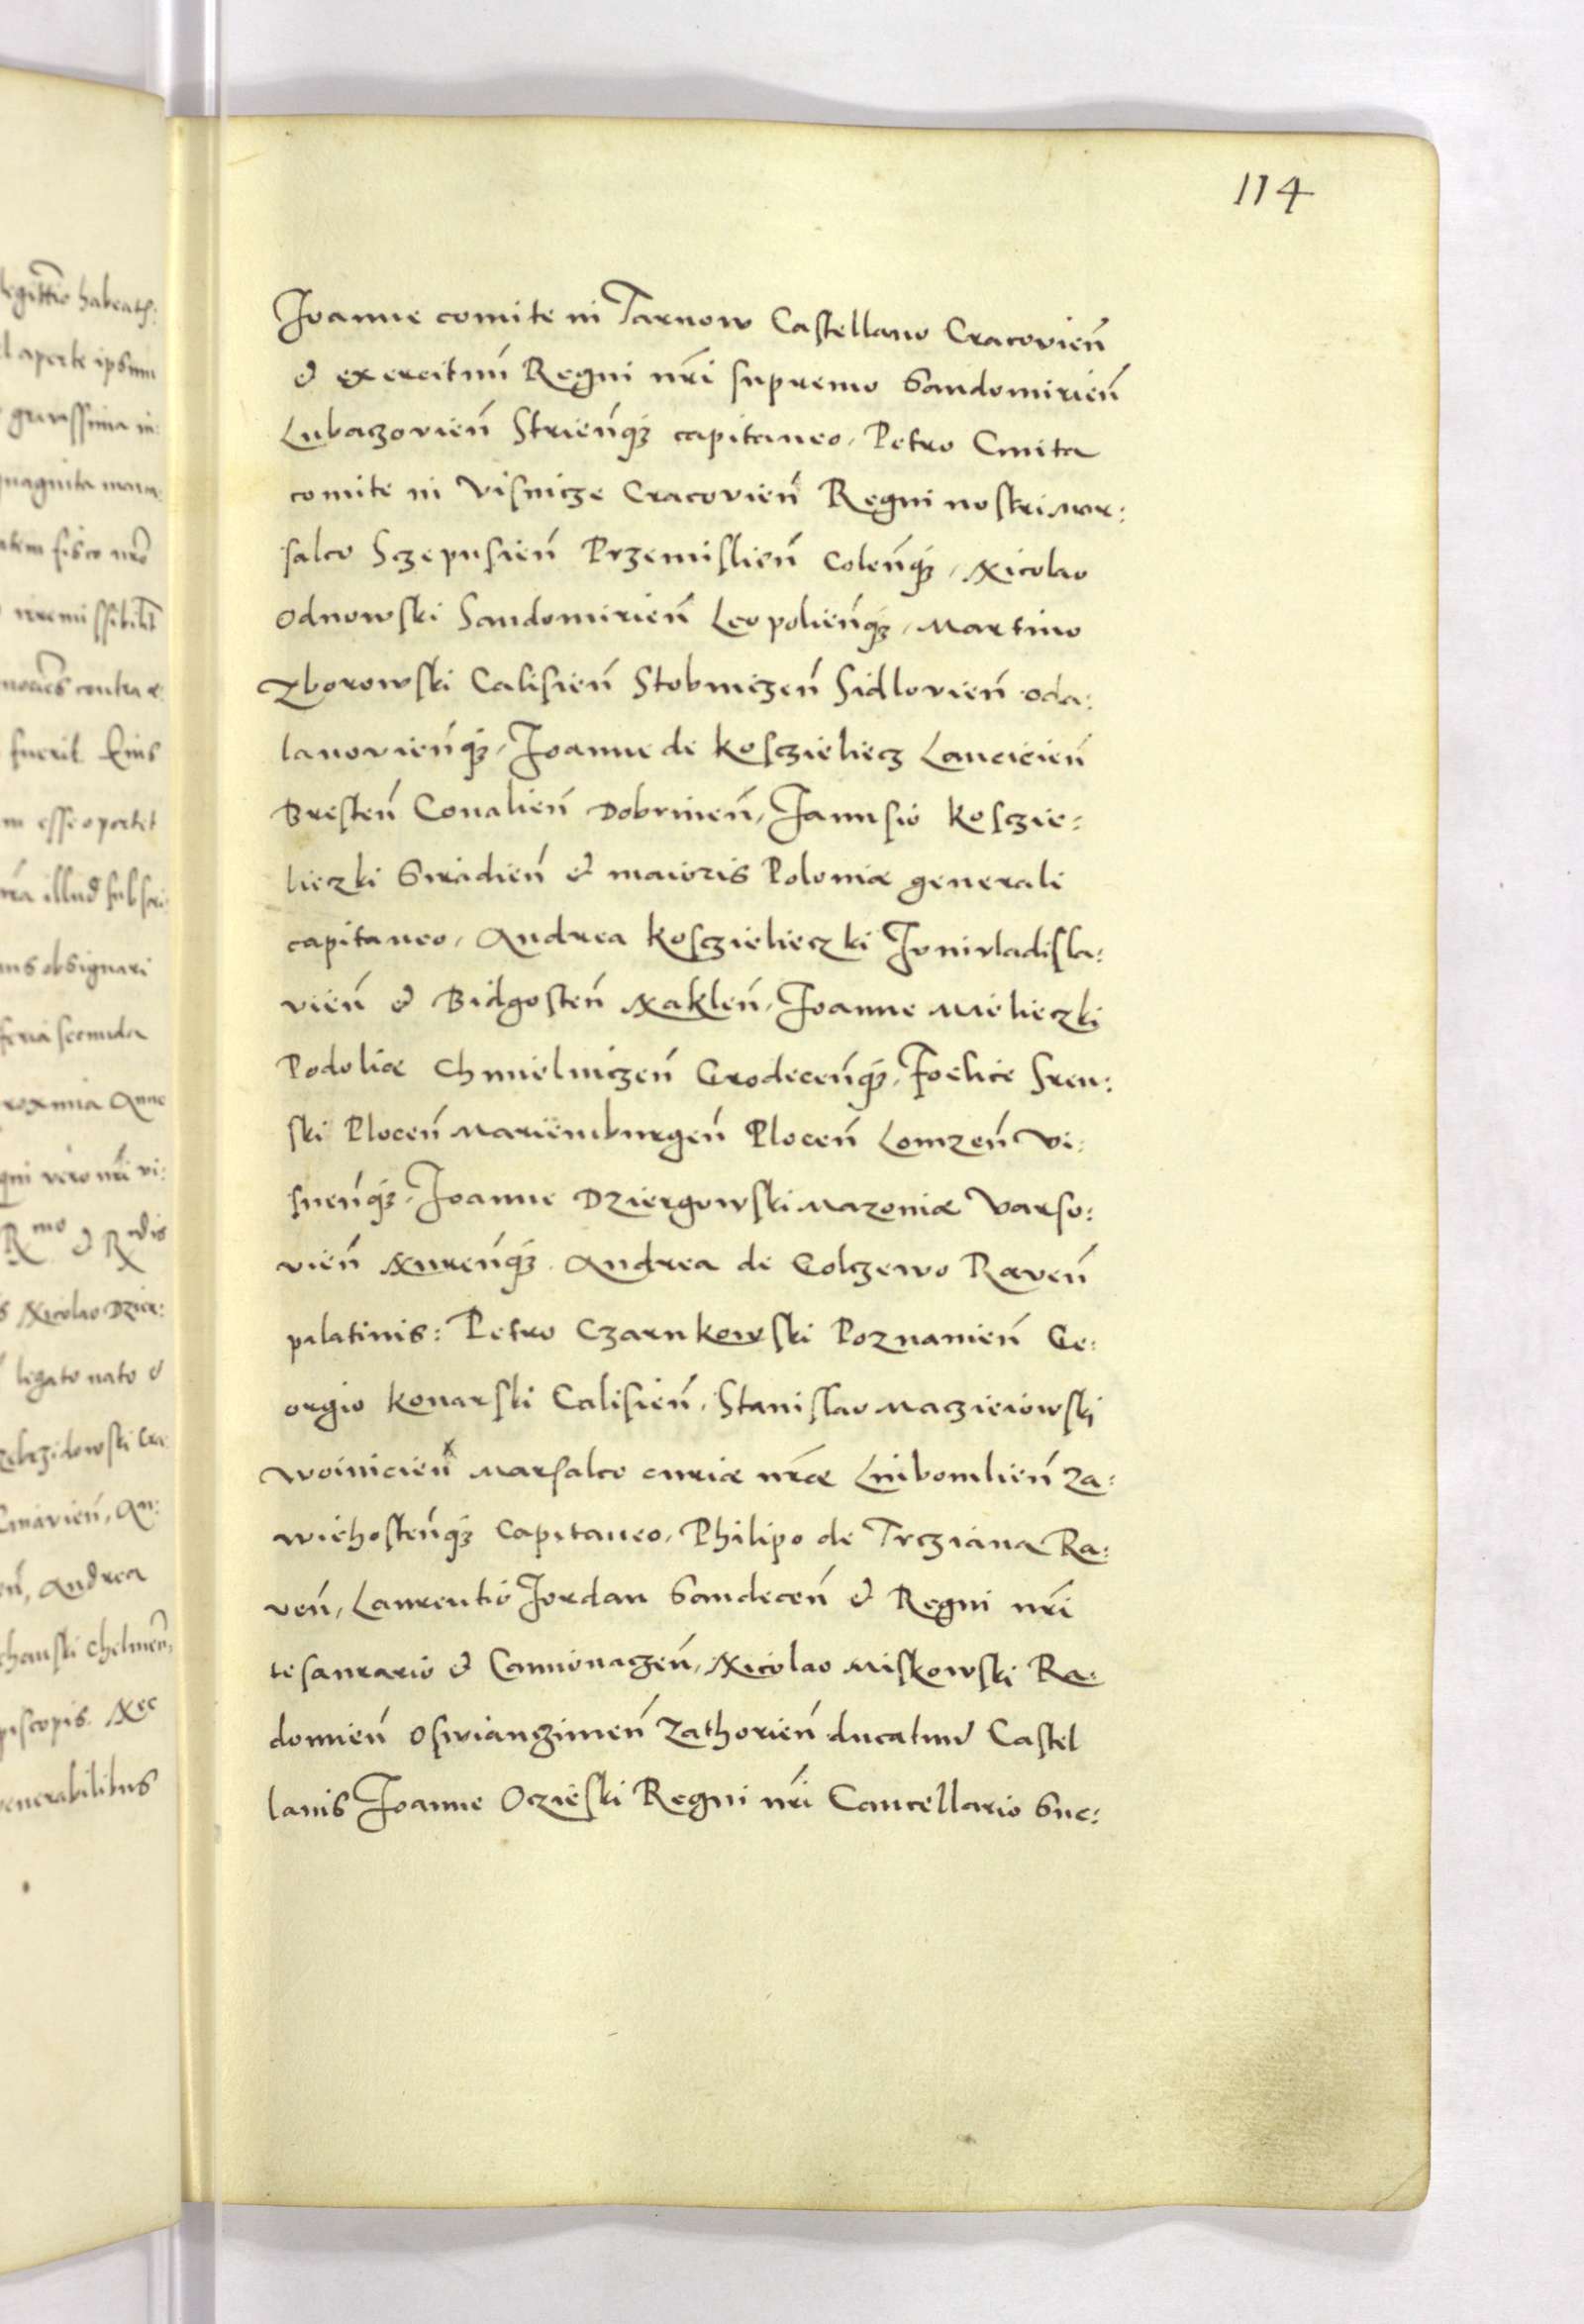 114
Joanne comite in Tarnow Castellano Cracovień
& exercituū Regni nr̄i supremo Sandomirień
Lubaczovień Strieńq3 capitaneo, Petro Cmita
comite in Visnicze Cracovień Regni nostri mar:
salco Sczepusień Przemislień Coleńq3, Nicolao
Odnowski Sandomirień Leopolieńq3, Martino
Zborowski Calisień Stobniczeń Sidlovień Oda:
lanovieńq3, Joanne de Kosczieliecz Lancicień
Bresteń Conalień Dobrineń, Janusio Kosczie:
lieczki Siradień & maioris Poloniæ generali
capitaneo, Andrea Kosczielieczki Junivladisla:
vień & Bidgosteń Nakleń, Joanne Mielieczki
Podoliæ Chmielniczeń Grodeceńq3, Foelice Sren:
ski Ploceń Mariemburgeń Ploceń Lomzeń Vi:
sneńq3, Joanne Dziergowski Mazoniæ Varso:
vień Nureńq3. Andrea de Golczewo Raveń
palatinis: Petro Czarnkowski Poznanień Ge:
orgio Konarski Calisień, Stanislao Macziéiowski
Woinicień marsalco curiæ nr̄æ Luibomlień Za:
wiehosteńq3 Capitaneo, Philipo de Trcziana Ra:
veń, Laurentio Jordan Sandeceń & Regni nr̄i
tesaurario & Camionaczeń, Nicolao Miskowski Ra:
domień Oswianzimeń Zathorień ducatuū Castel
lanis Joanne Oczieski Regni nr̄i Cancellario Suc:
legitīo habeat~:
l aperte ipsum
gravissima in:
magnita mana:
atem fisco nr̄o
irremissibilit̄
contra e
fuerit Eius
m esse oportet
illud subscri:
us obsignari
feria secunda
proxima Anno
qui vero nr̄i vi:
Rmo & Rndis
s Nicolao Dzier:
legato nato &
ń, An:
eń, Andrea
Chelmeń,
piscopis. Nec
venerabilibus